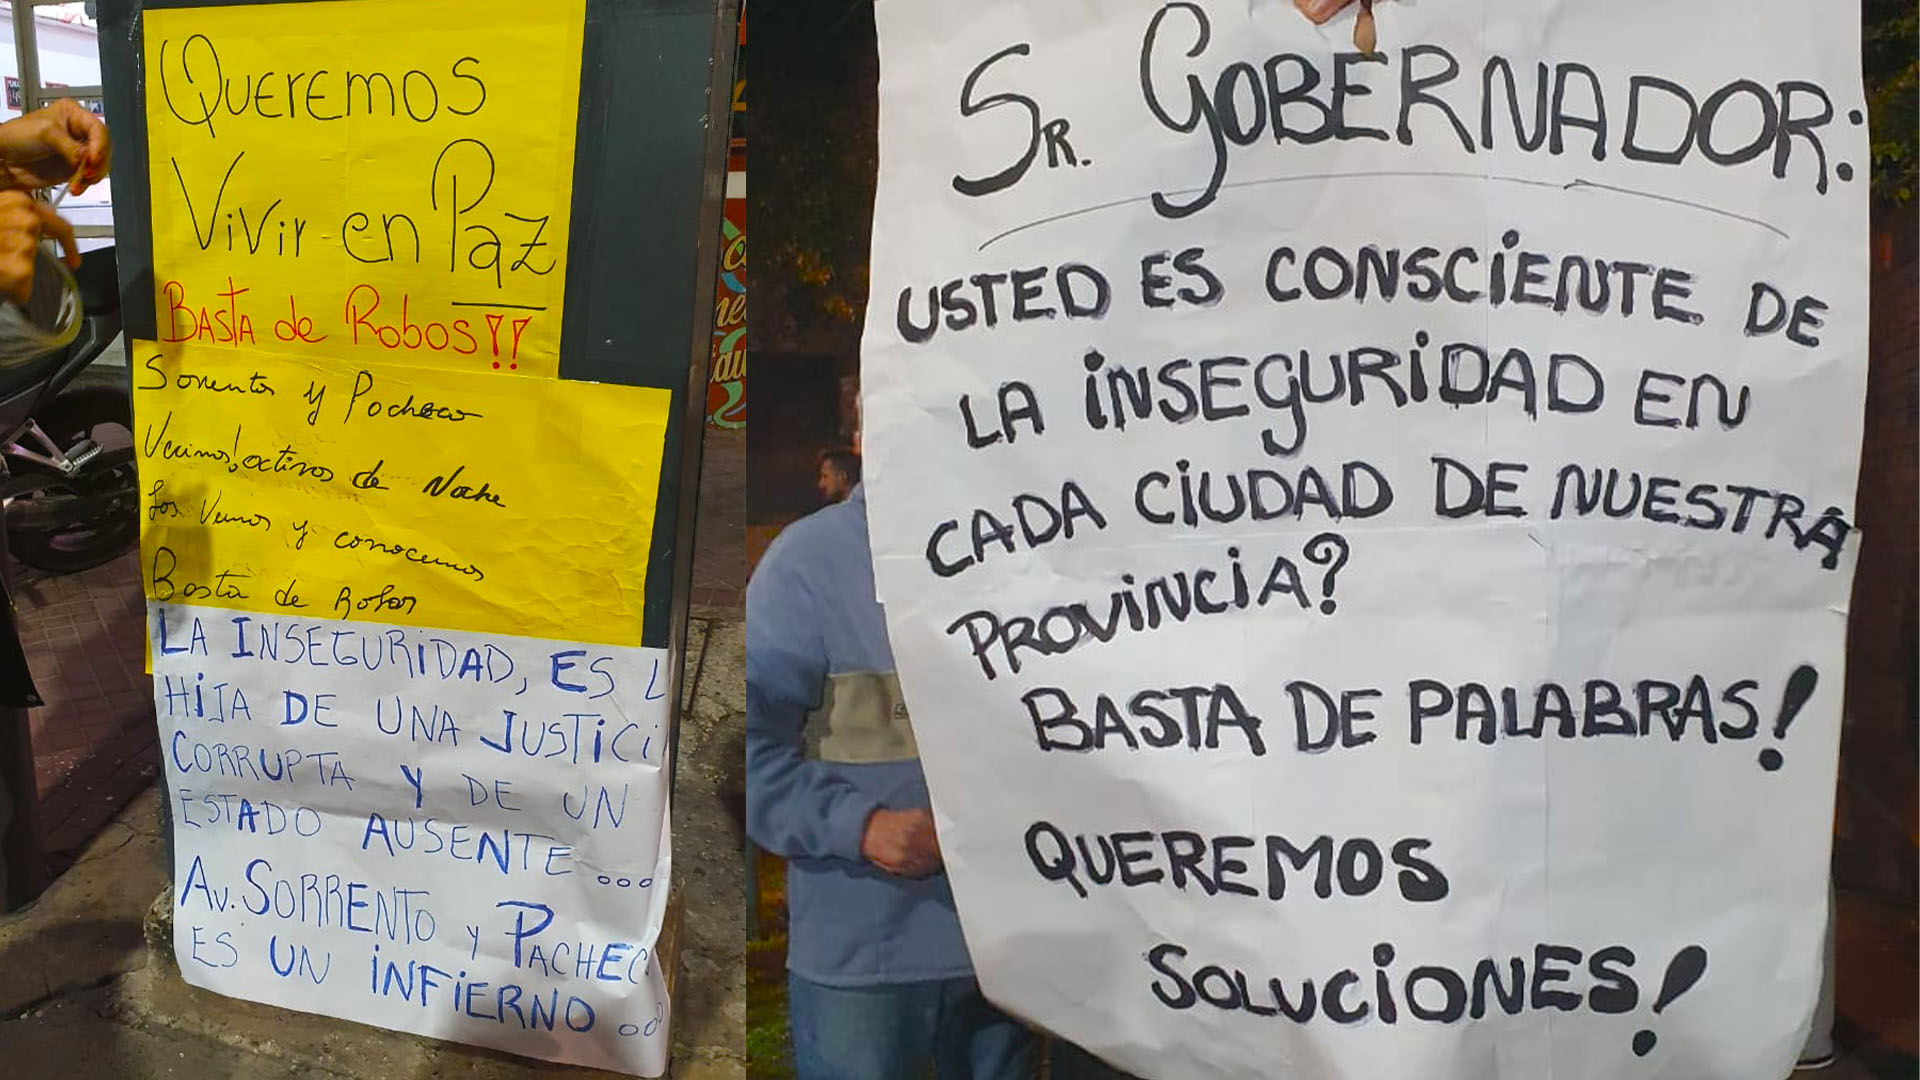 Queremos
Vivir en Paz
BASTA de Robos!!
Sorrento y Pacheco
Vecinos! activos de Noche
Los Vecinos y conocemos
Basta de Robos
LA INSEGURIDAD, ES L
HIJA DE UNA JUSTICI
CORRUPTA Y DE UN
ESTADO AUSENTE ...
AV. SORRENTO Y PACHEC
ES UN INFIERNO ...
SR. GOBERNADOR:
USTED ES CONSCIENTE DE
LA INSEGURIDAD EN
CADA CIUDAD DE NUESTRA
PROVINCIA?
BASTA DE PALABRAS!
QUEREMOS
SOLUCIONES!